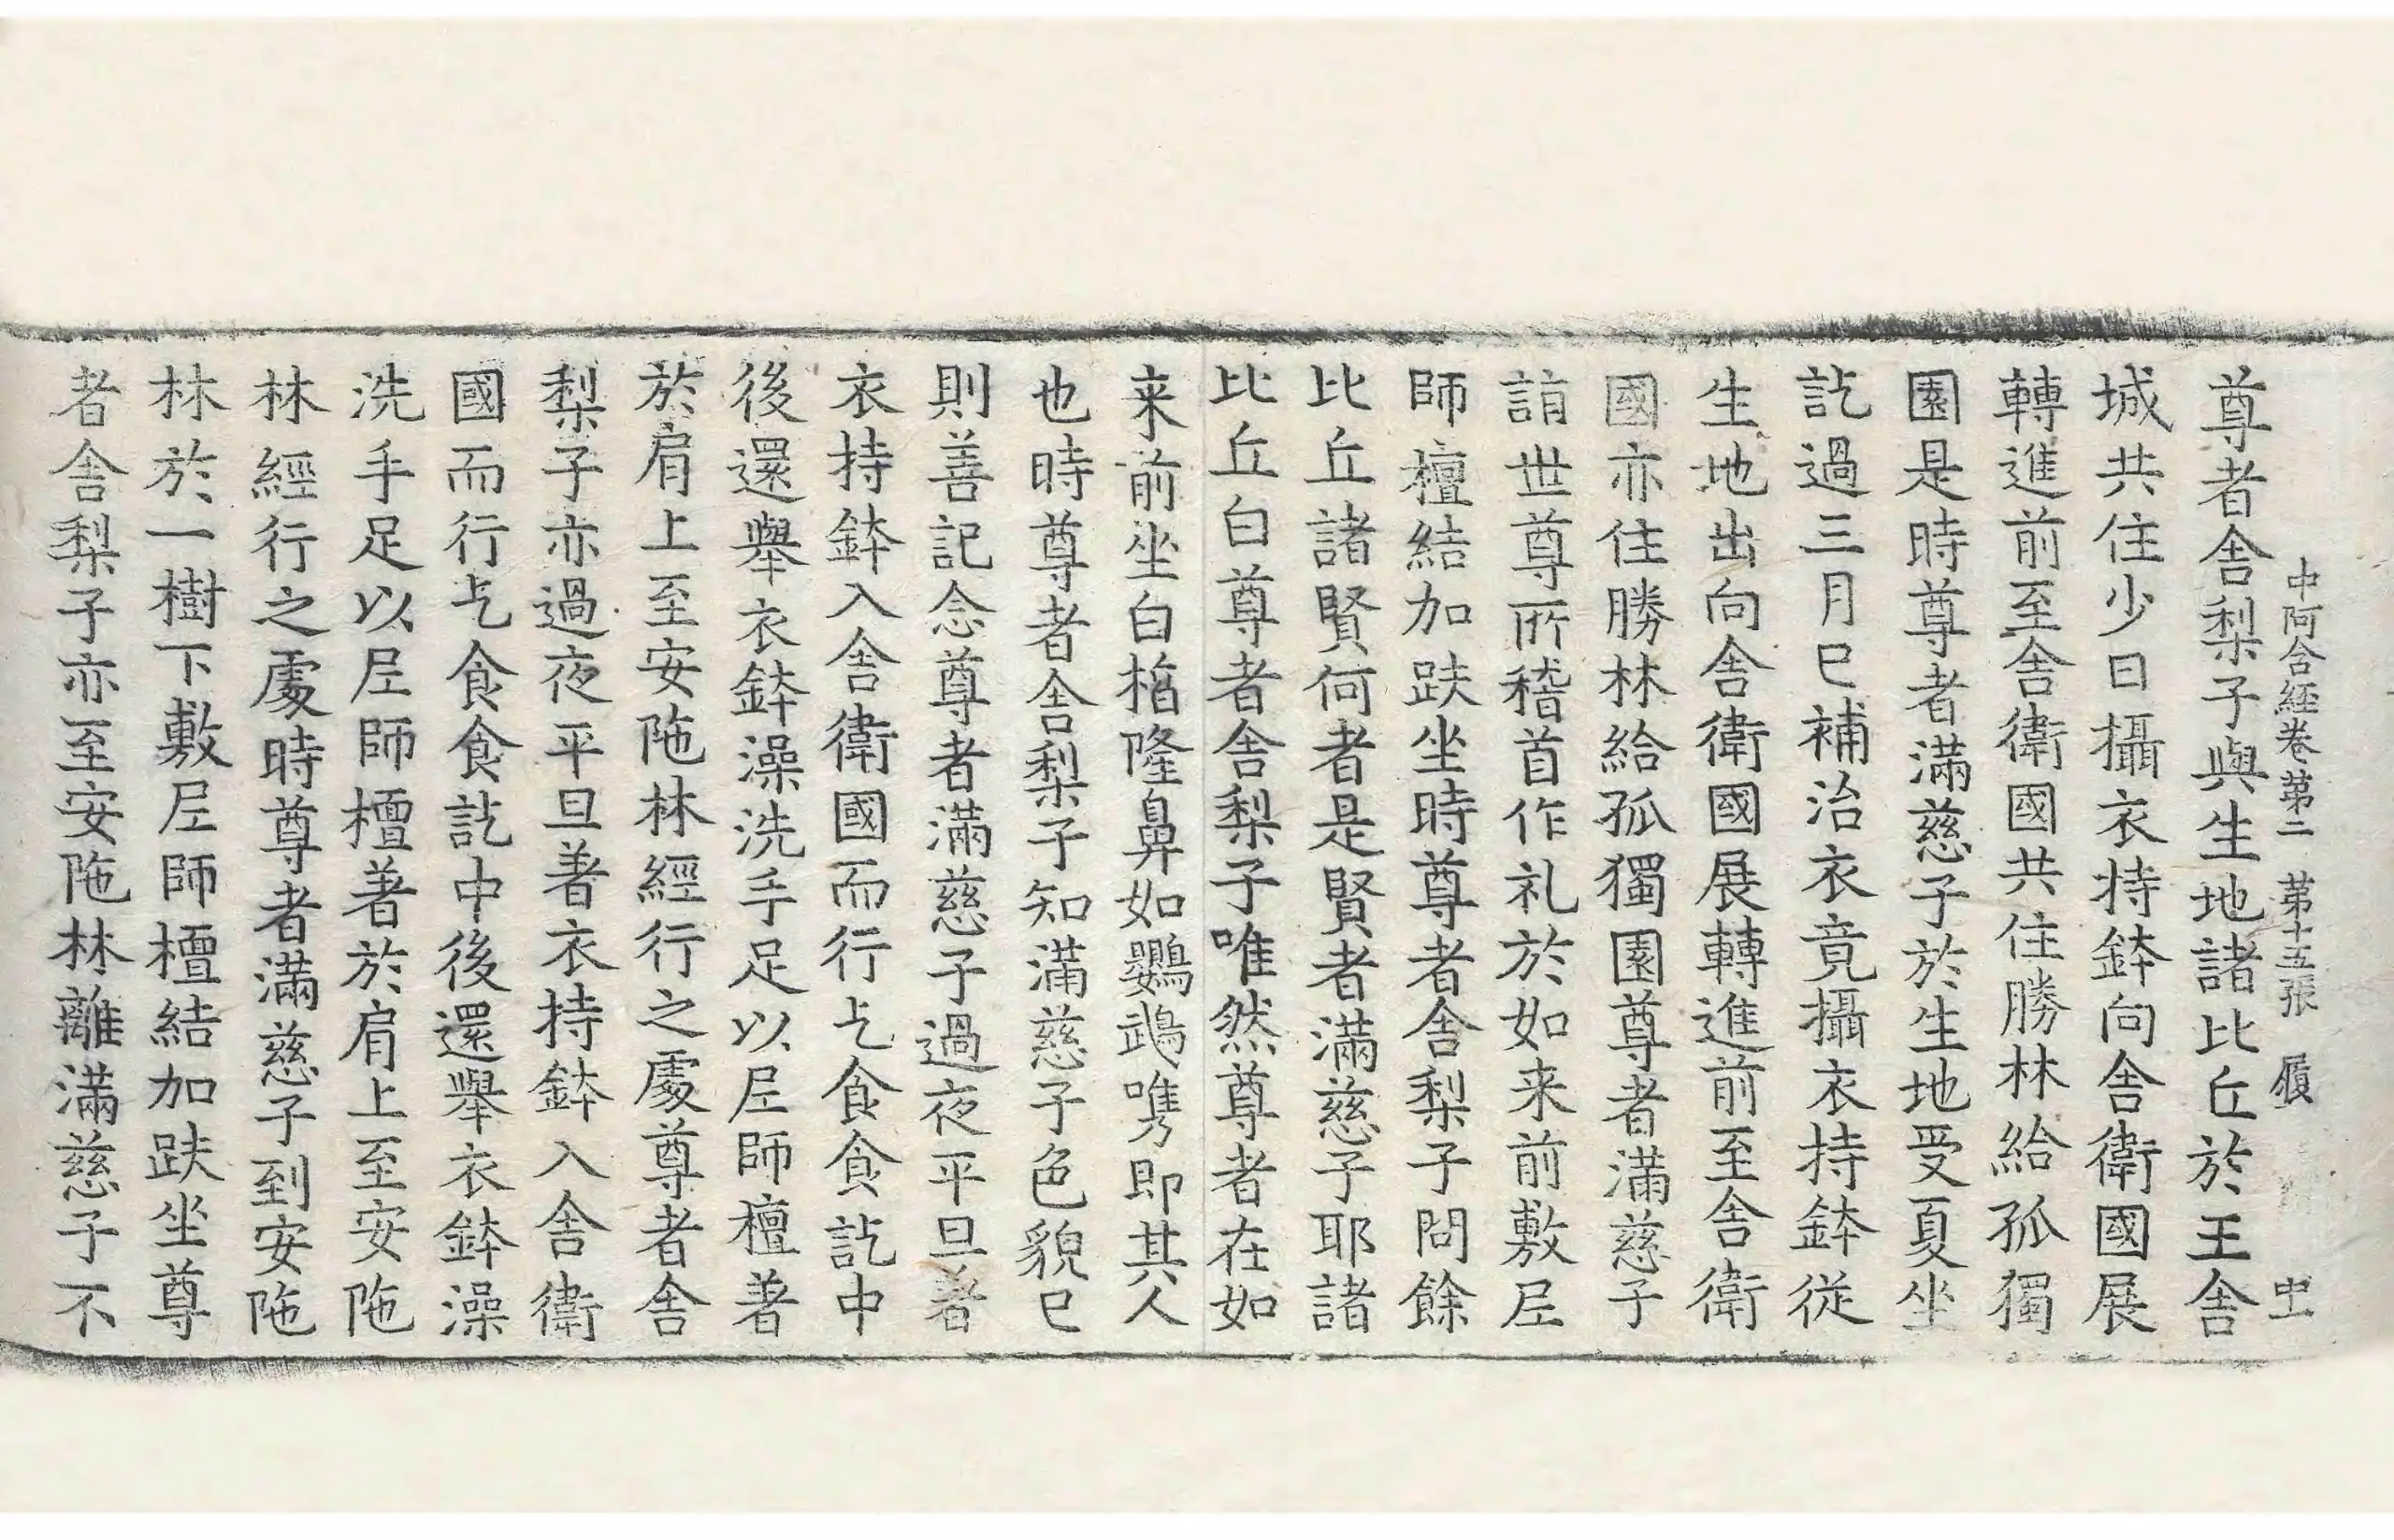 中阿含經卷第二　第十五張　履　中
尊者舍梨子與生地諸比丘於王舍
城共住少日攝衣持鉢向舍衛國展
轉進前至舍衛國共住勝林給孤獨
園是時尊者滿慈子於生地受夏坐
訖過三月已補治衣竟攝衣持鉢從
生地出向舍衛國展轉進前至舍衛
國亦住勝林給孤獨園尊者滿慈子
詣世尊所稽首作礼於如来前敷尼
師檀結加趺坐時尊者舍梨子問餘
比丘諸賢何者是賢者滿慈子耶諸
比丘白尊者舍梨子唯然尊者在如
来前坐白㿥隆鼻如鸚鵡嘴即其人
也時尊者舍梨子知滿慈子色貌已
則善記念尊者滿慈子過夜平旦著
衣持鉢入舍衛國而行乞食食訖中
後還舉衣鉢澡洗手足以尼師檀著
於肩上至安陁林經行之處尊者舍
梨子亦過夜平旦著衣持鉢入舍衛
國而行乞食食訖中後還舉衣鉢澡
洗手足以尼師檀著於肩上至安陁
林經行之處時尊者滿慈子到安陁
林於一樹下敷尼師檀結加趺坐尊
者舍梨子亦至安陁林離滿慈子不